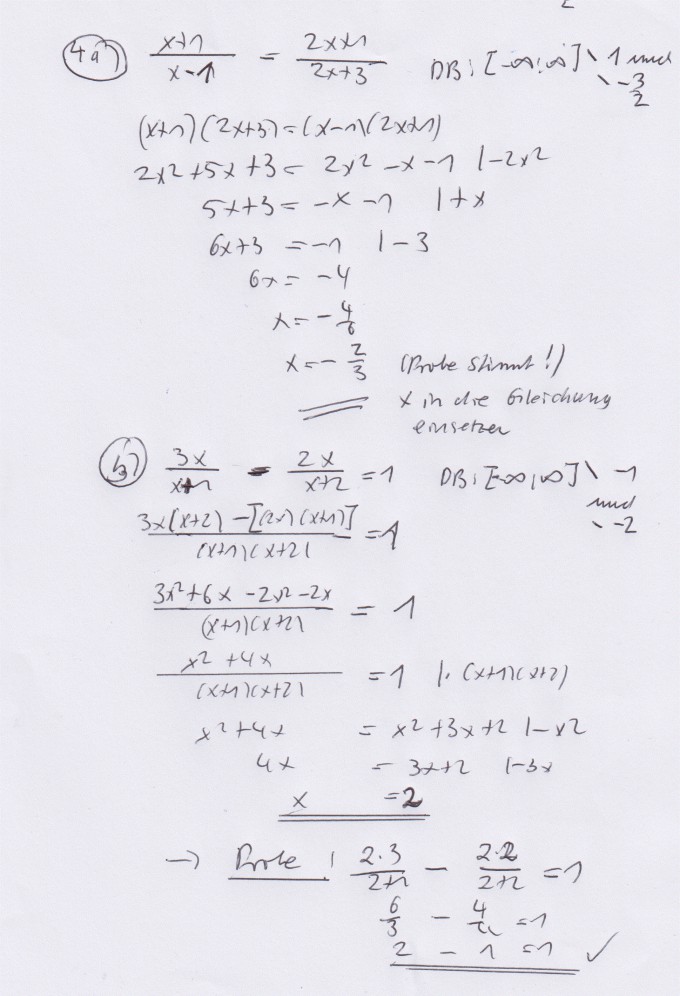 2
4a) x+1/x-1 = 2x+1/2x+3 DB: [-∞;∞] \ 1 und \ -3/2
(x+1)(2x+3)=(x-1)(2x+1)
2x²+5x+3= 2x²-x-1 |-2x²
5x+3=-x-1 |+x
6x+3 =-1 |-3
6x= -4
x=-4/6
x=-2/3 (Probe stimmt!)
x in die Gleichung
einsetzen
b) 3x/x+1 - 2x/x+2 =1 DB: [-∞;∞] \ -1 und \ -2
3x(x+2)-[(2x)(x+1)]/(x+1)(x+2) =1
3x²+6x-2x²-2x/(x+1)(x+2) = 1
x²+4x/(x+1)(x+2) =1 |·(x+1)(x+2)
x²+4x = x²+3x+2 |-x²
4x = 3x+2 |-3x
x =2
→ Probe: 2·3/2+1 - 2·2/2+2 =1
6/3 - 4/4 =1
2 - 1 =1 ✓